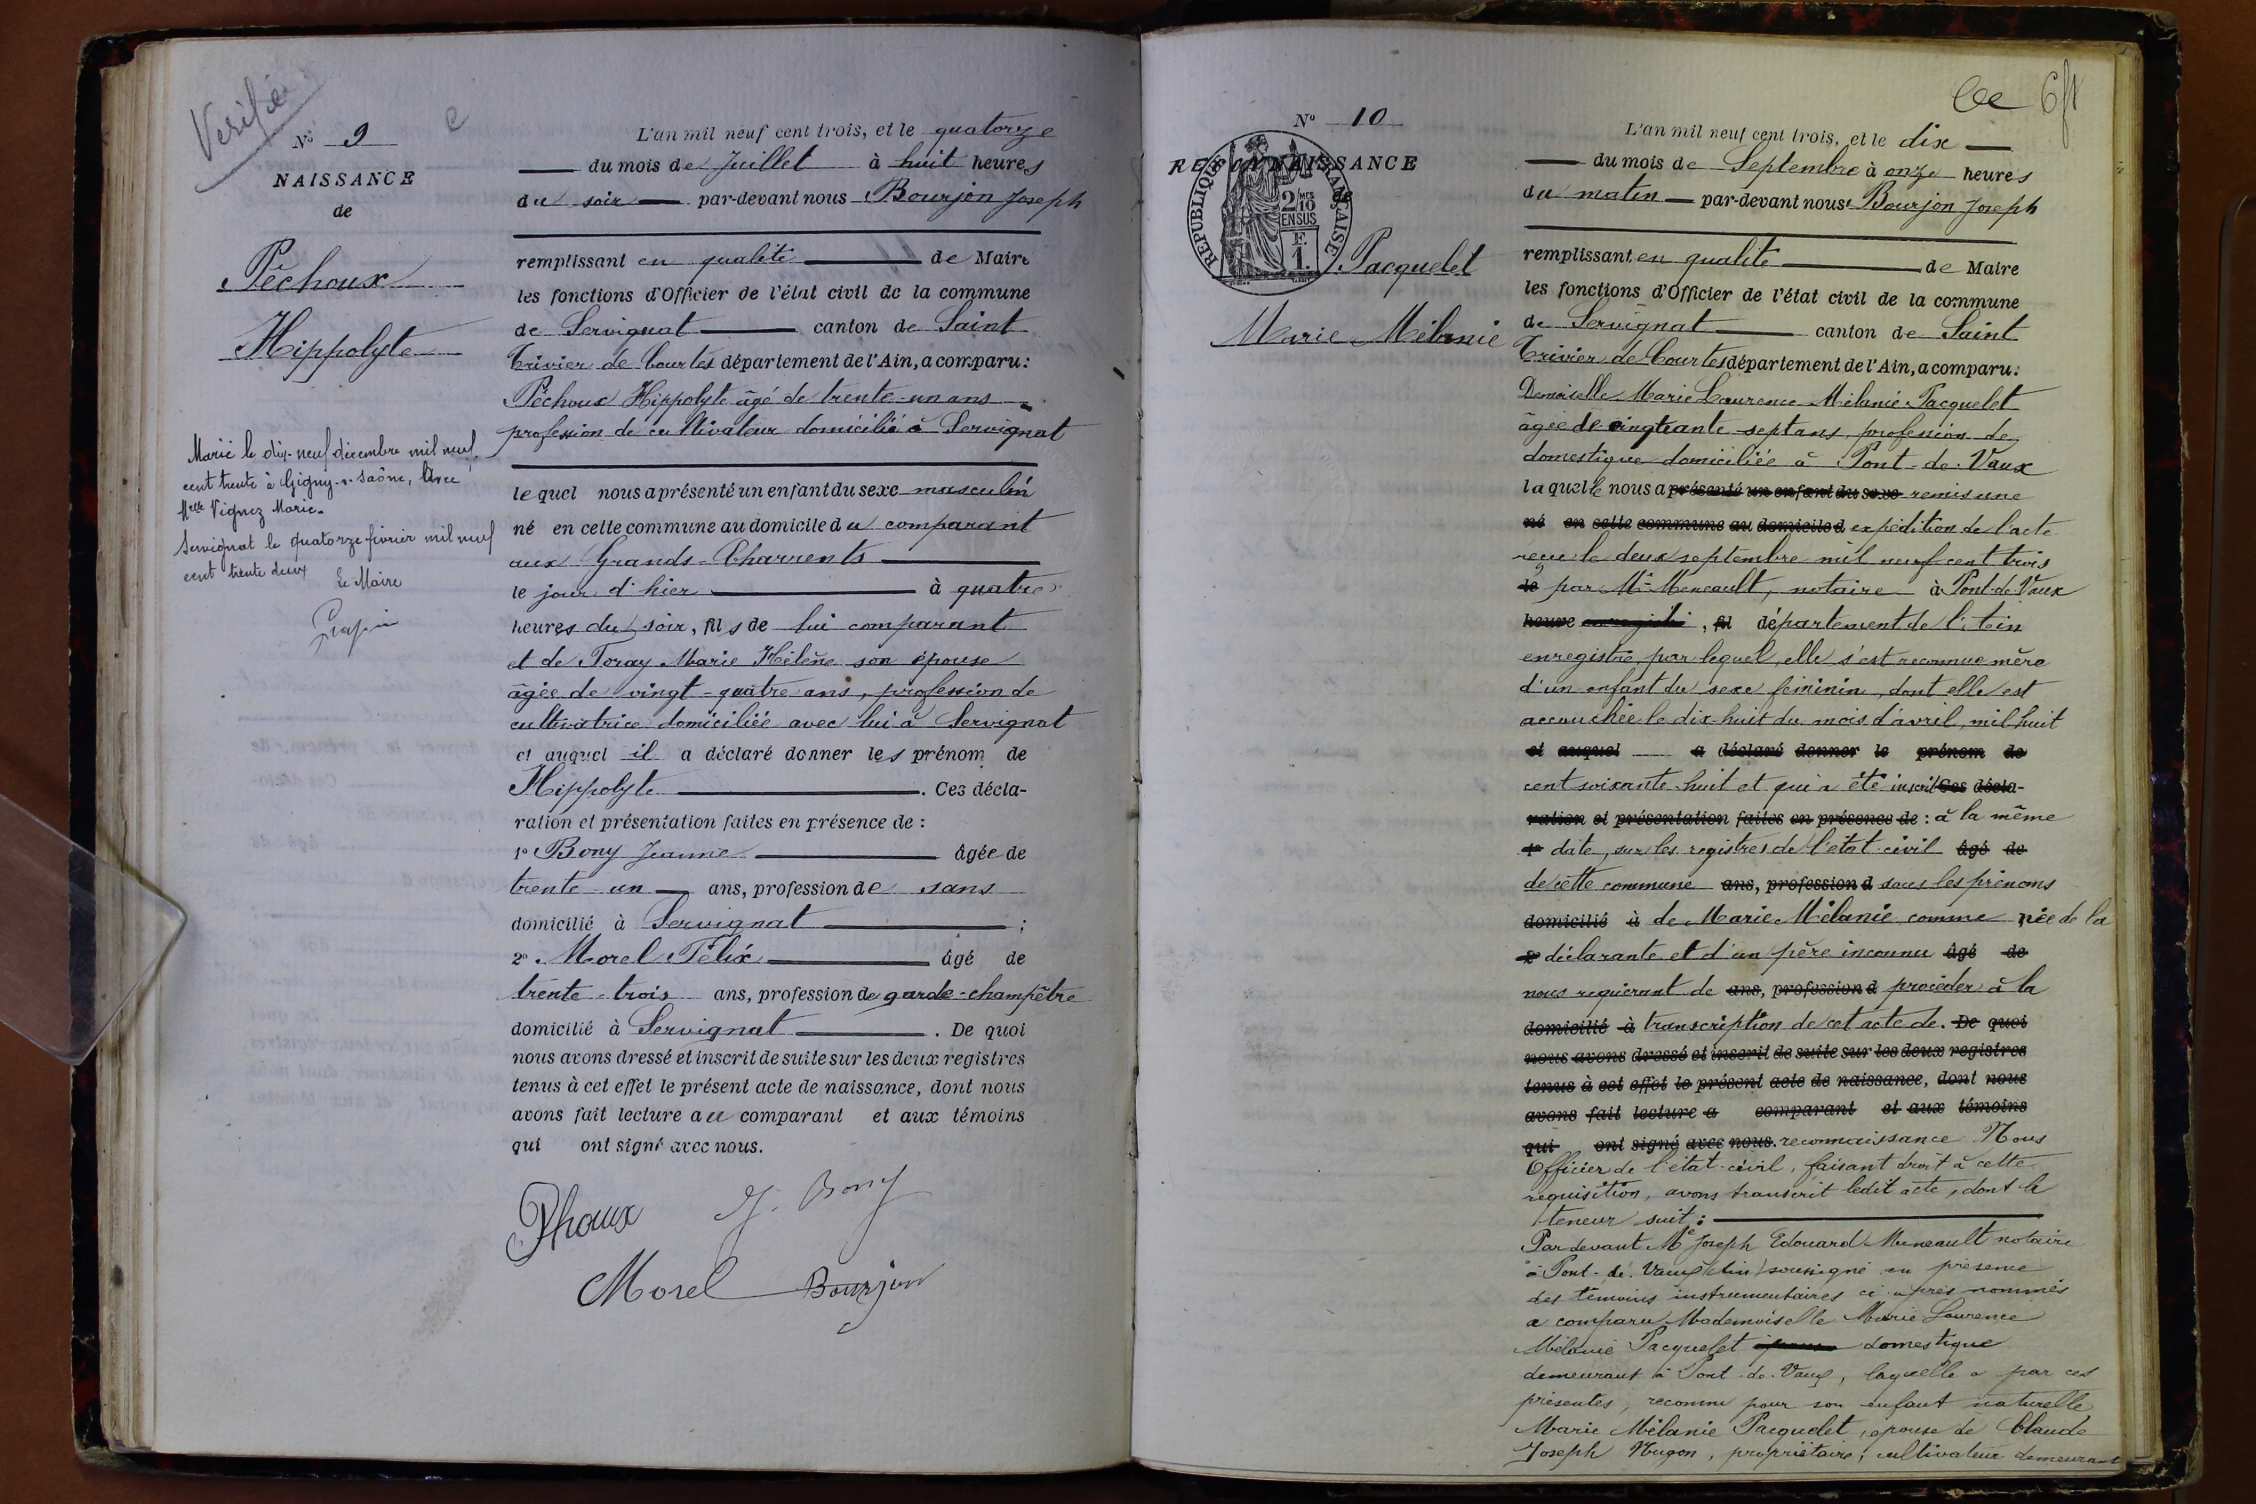 Verifié
c
N° 9
NAISSANCE
de
Péchoux
Hippolyte
Marié le dix-neuf décembre mil neuf
cent trente à Gigny-s-Saône, avec
Melle Vignez Marie.
Servignat le quatorze février mil neuf
cent trente deux
Le Maire
L'an mil neuf cent trois, et le quatorze
du mois de Juillet à huit heures
du soir par-devant nous Bourjon Joseph
remplissant en qualité de Maire
les fonctions d'Officier de l'état civil de la commune
de Servignat canton de Saint
Trivier de Courtes département de l'Ain, a comparu:
Péchoux Hippolyte âgé de trente-un ans
profession de cultivateur domicilié à Servignat
lequel nous a présenté un enfant du sexe masculin
né en cette commune au domicile du comparant
aux Grands-Charrents
le jour d'hier à quatre
heures du soir, fils de lui comparant
et de Toray Marie Hélène son épouse
âgée de vingt-quatre ans, profession de
cultivatrice domiciliée avec lui à Servignat
et auquel il a déclaré donner les prénom de
Hippolyte. Ces décla-
ration et présentation faites en présence de :
1° Bony Jeanne âgée de
trente-un ans, profession de sans
domicilié à Servignat ;
2° Morel Félix âgé de
trente-trois ans, profession de garde-champêtre
domicilié à Servignat. De quoi
nous avons dressé et inscrit de suite sur les deux registres
tenus à cet effet le présent acte de naissance, dont nous
avons fait lecture au comparant et aux témoins
qui ont signé avec nous.
Phoux J. Bony
Morel Bourjon
N° 10
RECONNAISSANCE
de
RÉPUBLIQUE FRANÇAISE
2/10 MES
EN SUS
F.
1.
Pacquelet
Marie Mélanie
L'an mil neuf cent trois, et le dix
du mois de Septembre à onze heures
du matin par-devant nous Bourjon Joseph
remplissant en qualité de Maire
les fonctions d'Officier de l'état civil de la commune
de Servignat canton de Saint
Trivier de Courtes département de l'Ain, a comparu:
Demoiselle Marie Laurence Mélanie Pacquelet
âgée de cinquante sept ans, profession de
domestique domiciliée à Pont-de-Vaux
laquelle nous a présenté un enfant du sexe remis une
né en cette commune au domicile d expédition de l'acte
reçu le deux septembre mil neuf cent trois
le par Me Meneault, notaire à Pont-de-Vaux
heure, fil département de l'Ain
enregistré, par lequel, elle s'est reconnue mère
d'un enfant du sexe féminin, dont elle est
accouchée le dix-huit du mois d'avril, mil huit
et auquel a déclaré donner le prénom de
cent soixante huit et qui a été inscrit Ces décla-
ration et présentation faites en présence de : à la même
1° date, sur les registres de l'état-civil âgé de
de cette commune ans, profession d sous les prénoms
domicilié à de Marie Mélanie comme née de la
2° déclarante et d'un père inconnu âgé de
nous requérant de ans, profession d procéder à la
domicilié à transcription de cet acte de. De quoi
nous avons dressé et inscrit de suite sur les deux registres
tenus à cet effet le présent acte de naissance, dont nous
avons fait lecture a comparant et aux témoins
qui ont signé avec nous. reconnaissance Nous
Officier de l'état-civil, faisant droit à cette
réquisition, avons transcrit ledit acte, dont la
teneur suit :
Pardevant Me Joseph Edouard Meneault notaire
à Pont-de-Vaux (Ain) soussigné en présence
des témoins instrumentaires ci-après nommés
a comparu Mademoiselle Marie Laurence
Mélanie Pacquelet domestique
demeurant à Pont-de-Vaux, laquelle a par ces
présentes, reconnu pour son enfant naturelle
Marie Mélanie Pacquelet, épouse de Claude
Joseph Nugon, propriétaire, cultivateur demeurant